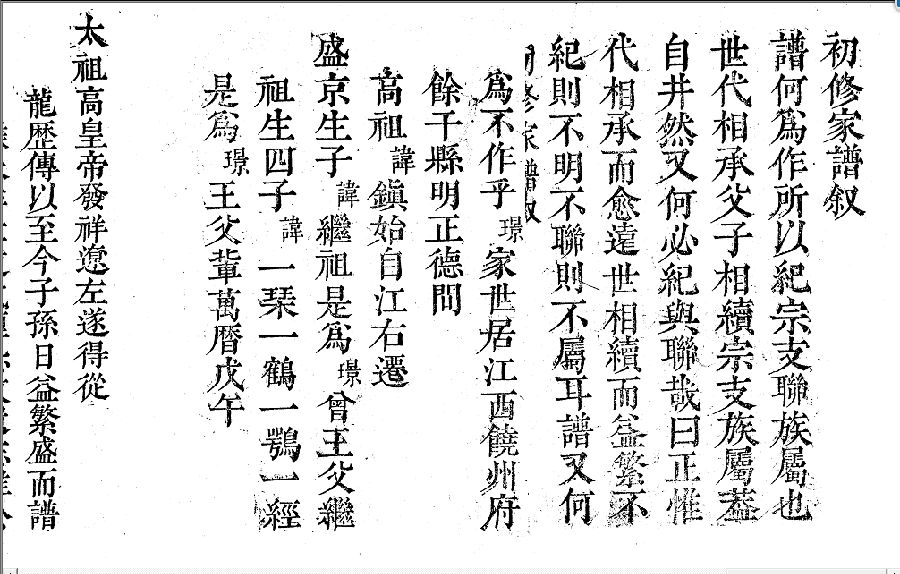 初修家譜叙
譜何為作所以紀宗支聯族屬也
世代相承父子相續宗支族屬葢
自井然又何必紀與聯哉曰正惟
代相承而愈遠世相續而益繁不
紀則不明不聯則不屬耳譜又何
初修家譜叙
為不作乎璟家世居江西饒州府
餘干縣明正德間
高祖諱鎮始自江右遷
盛京生子諱繼祖是為璟曾王父繼
祖生四子諱一琹一鶴一鶚一經
是為璟王父輩萬曆戊午
太祖高皇帝發祥遼左遂得從
龍歷傳以至今子孫日益繁盛而譜